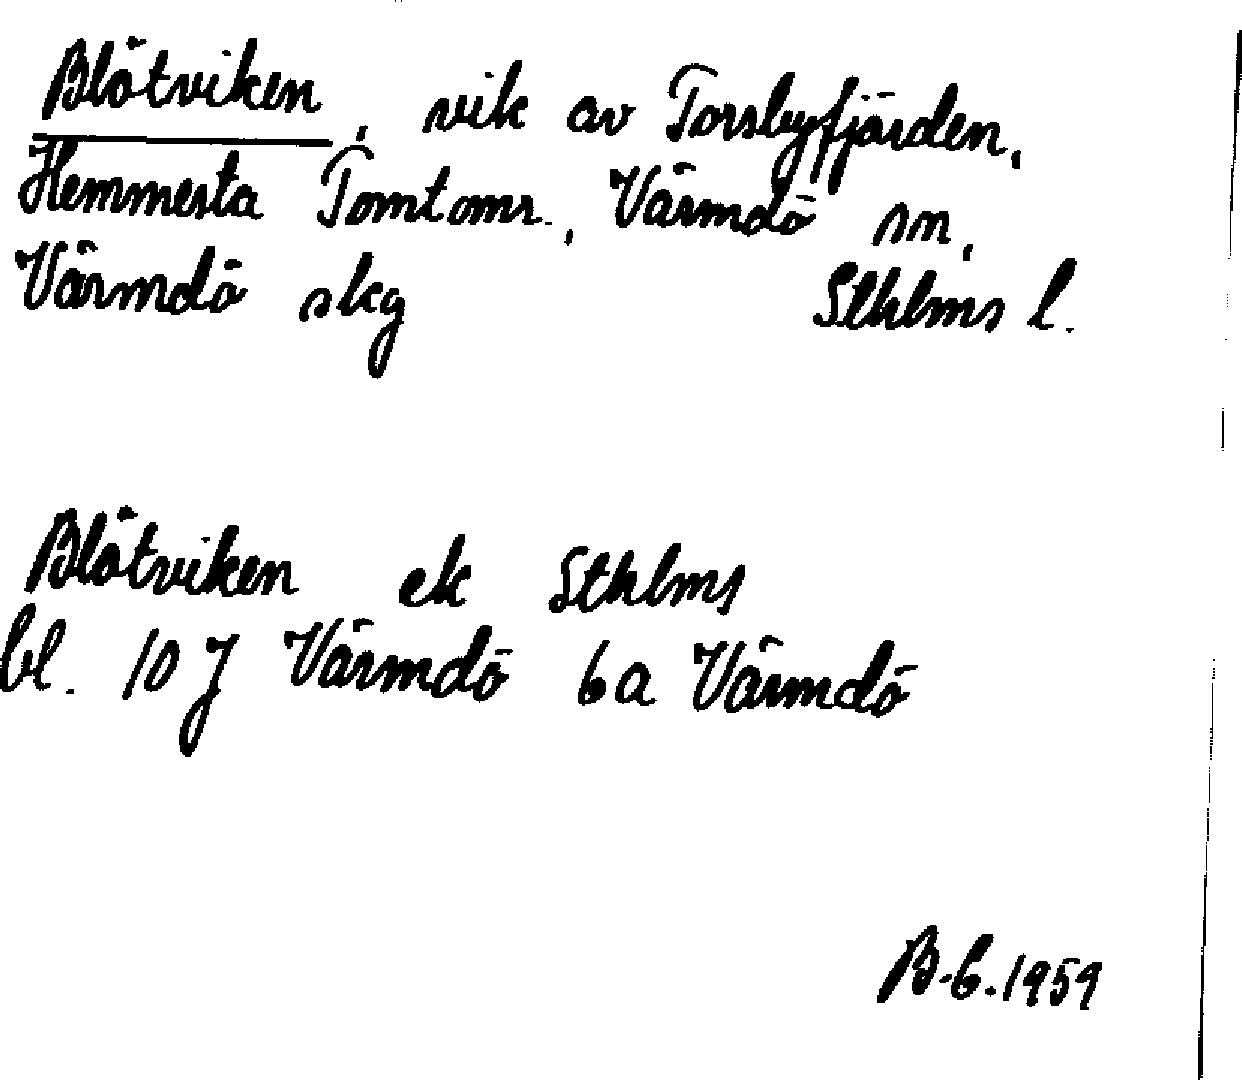 Blötviken, vik av Torsbyfjärden,
Hemmesta Tomtomr., Värmdö sn,
Värmdö skg Sthlms l.
Blötviken ek Sthlms
bl. 10 J Värmdö 6a Värmdö
B-C. 1959